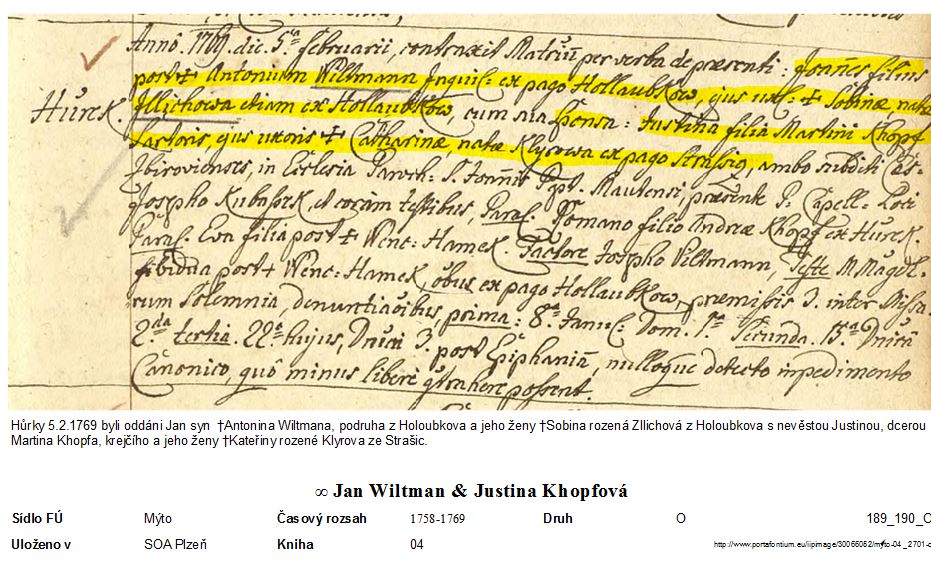 Annô. 1769. die. 5.ta februarii, contraxit Matrim̄ per verba de præsenti: Joañes filius
post ✝ Antonium Wiltmann Inquil: ex pago Hollaubkow, ejus uxl: ✝ Sobinæ natæ
Zllichowa etiam ex Hollaubkow, cum sua Sponsa: Justina filia Martini Khopf
Hůrek. Sartoris, ejus uxoris ✝ Catharinæ, natæ Klyrowa ex pago Strassig, ambo subditi
Zbirovienses, in Ecclesia Paroch: S. Joannis Bpt. Mautensi, præsente P: Capell: Loci
Josepho, et coràm testibus, Paraf. Romano filio Andreæ Khopf ex Hůrek.
Paraf. Eva filia post ✝ Wenc: Hamek. Josepho Viltmann, Teste M Magd.
post ✝ Wenc: Hamek, ex pago Hollaubkow, præmissis 3. inter Missa-
rum Solemnia, denuntiaõibus, prima: 8.a Januâ: Dom. 1.a Secunda. 15.a Dnicâ
2.da tertia. 22.a Hujus, Dnicâ 3. post Epiphaniã, nulloque detecto impedimento
Canonico, quô minus liberè qtrahere possent.
Hůrky 5.2.1769 byli oddáni Jan syn †Antonina Wiltmana, podruha z Holoubkova a jeho ženy †Sobina rozená Zllichová z Holoubkova s nevěstou Justinou, dcerou
Martina Khopfa, krejčího a jeho ženy †Kateřiny rozené Klyrova ze Strašic.
∞ Jan Wiltman & Justina Khopfová
Sídlo FÚ Mýto Časový rozsah 1758-1769 Druh O 189_190_O
Uloženo v SOA Plzeň Kniha 04 http://www.portafontium.eu/iipimage/30066082/myto-04_2701-o